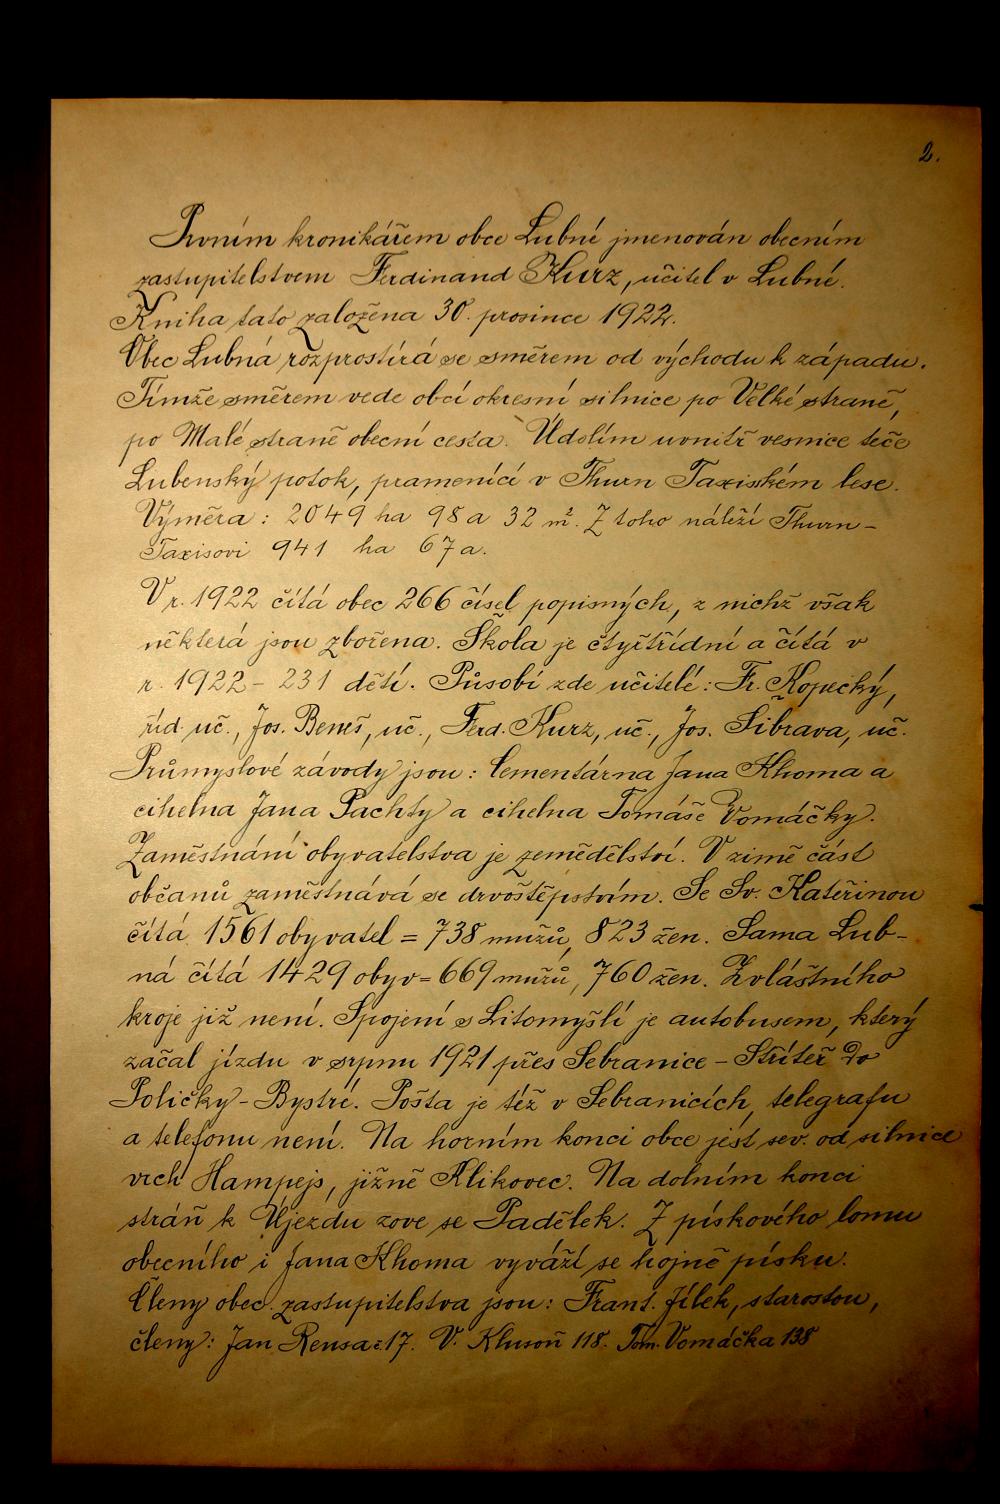 2.
Prvním kronikářem obce Lubné jmenován obecním
zastupitelstvem Ferdinand Kurz, učitel v Lubné.
Kniha tato založena 30. prosince 1922.
Obec Lubná rozprostírá se směrem od východu k západu.
Tímže směrem vede obcí okresní silnice po Velké straně,
po Malé straně obecní cesta. Údolím uvnitř vesnice teče
Lubenský potok, pramenící v Thurn Taxisském lese.
Výměra: 2049 ha 98 a 32 m². Z toho náleží Thurn-
Taxisovi 941 ha 67 a.
V r. 1922 čítá obec 266 čísel popisných, z nichž však
některá jsou zbořena. Škola je čtyřtřídní a čítá v
r. 1922 - 231 dětí. Působí zde učitelé: Fr. Kopecký,
říd. uč., Jos. Beneš, uč., Ferd. Kurz, uč., Jos. Šibrava, uč.
Průmyslové závody jsou: Cementárna Jana Khoma a
cihelna Jana Pachty a cihelna Tomáše Vomáčky.
Zaměstnání obyvatelstva je zemědělství. V zimě část
občanů zaměstnává se drvoštěpstvím. Se Sv. Kateřinou
čítá 1561 obyvatel = 738 mužů, 823 žen. Sama Lub-
ná čítá 1429 obyv = 669 mužů, 760 žen. Zvláštního
kroje již není. Spojení s Litomyšlí je autobusem, který
začal jízdu v srpnu 1921 přes Sebranice - Střítěř do
Poličky - Bystré. Pošta je též v Sebranicích, telegrafu
a telefonu není. Na horním konci obce jest sev. od silnice
vrch Hampejs, jižně Klikovec. Na dolním konci
stráň k Újezdu zove se Padělek. Z pískového lomu
obecního i Jana Khoma vyváží se hojně písku.
Členy obec. zastupitelstva jsou: Frant. Jílek, starostou,
členy: Jan Rensa č. 17. V. Klusoň 118. Tom. Vomáčka 138